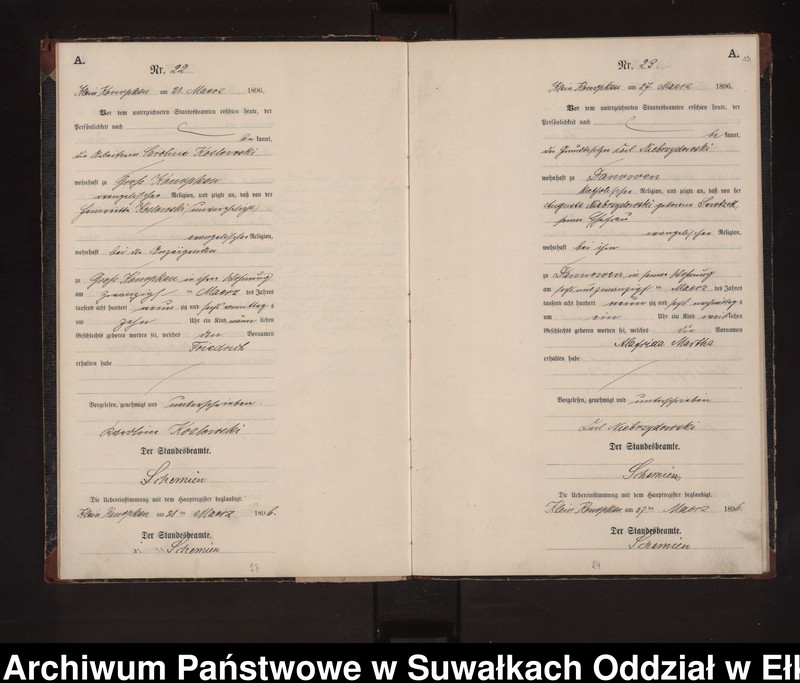 A.
Nr. 22
Klein Konopken am 21. Maerz 1896.
Vor dem unterzeichneten Standesbeamten erschien heute, der
Persönlichkeit nach
be kannt,
die Arbeiterin Caroline Koslowski
wohnhaft zu Groß Konopken
evangelischer Religion, und zeigte an, daß von der
Henriette Koslowski
evangelischer Religion,
wohnhaft bei der Anzeigenden
zu Groß Konopken in ihrer Wohnung
am zwanzigsten Maerz des Jahres
tausend acht hundert neunzig und sechs vormittags
um zehn Uhr ein Kind männlichen
Geschlechts geboren worden sei, welches den Vornamen
Friedrich
erhalten habe
Vorgelesen, genehmigt und unterschrieben.
Karoline Koslowski
Der Standesbeamte.
Schemien
Die Uebereinstimmung mit dem Hauptregister beglaubigt.
Klein Konopken am 21ten Maerz 1896.
Der Standesbeamte.
Schemien
23
A.
Nr. 23.
Klein Konopken am 27 Maerz 1896.
Vor dem unterzeichneten Standesbeamten erschien heute, der
Persönlichkeit nach
be kannt,
der Grundbesitzer Carl Niebrzydowski
wohnhaft zu Danowen
katholischer Religion, und zeigte an, daß von der
Auguste Niebrzydowski geborene
seiner Ehefrau
evangelischer Religion,
wohnhaft bei ihm
zu Dannowen in seiner Wohnung
am sechsundzwanzigsten Maerz des Jahres
tausend acht hundert neunzig und sechs nachmittags
um ein Uhr ein Kind weiblichen
Geschlechts geboren worden sei, welches die Vornamen
Martha
erhalten habe
Vorgelesen, genehmigt und unterschrieben
Carl Niebrzydowski
Der Standesbeamte.
Schemien
Die Uebereinstimmung mit dem Hauptregister beglaubigt.
Klein Konopken am 27ten Maerz 1896.
Der Standesbeamte.
Schemien
24
Archiwum Państwowe w Suwałkach Oddział w Ełk